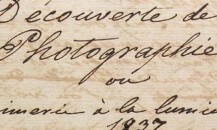 Découverte de
Photographie
ou
imerie à la lumiè
1837